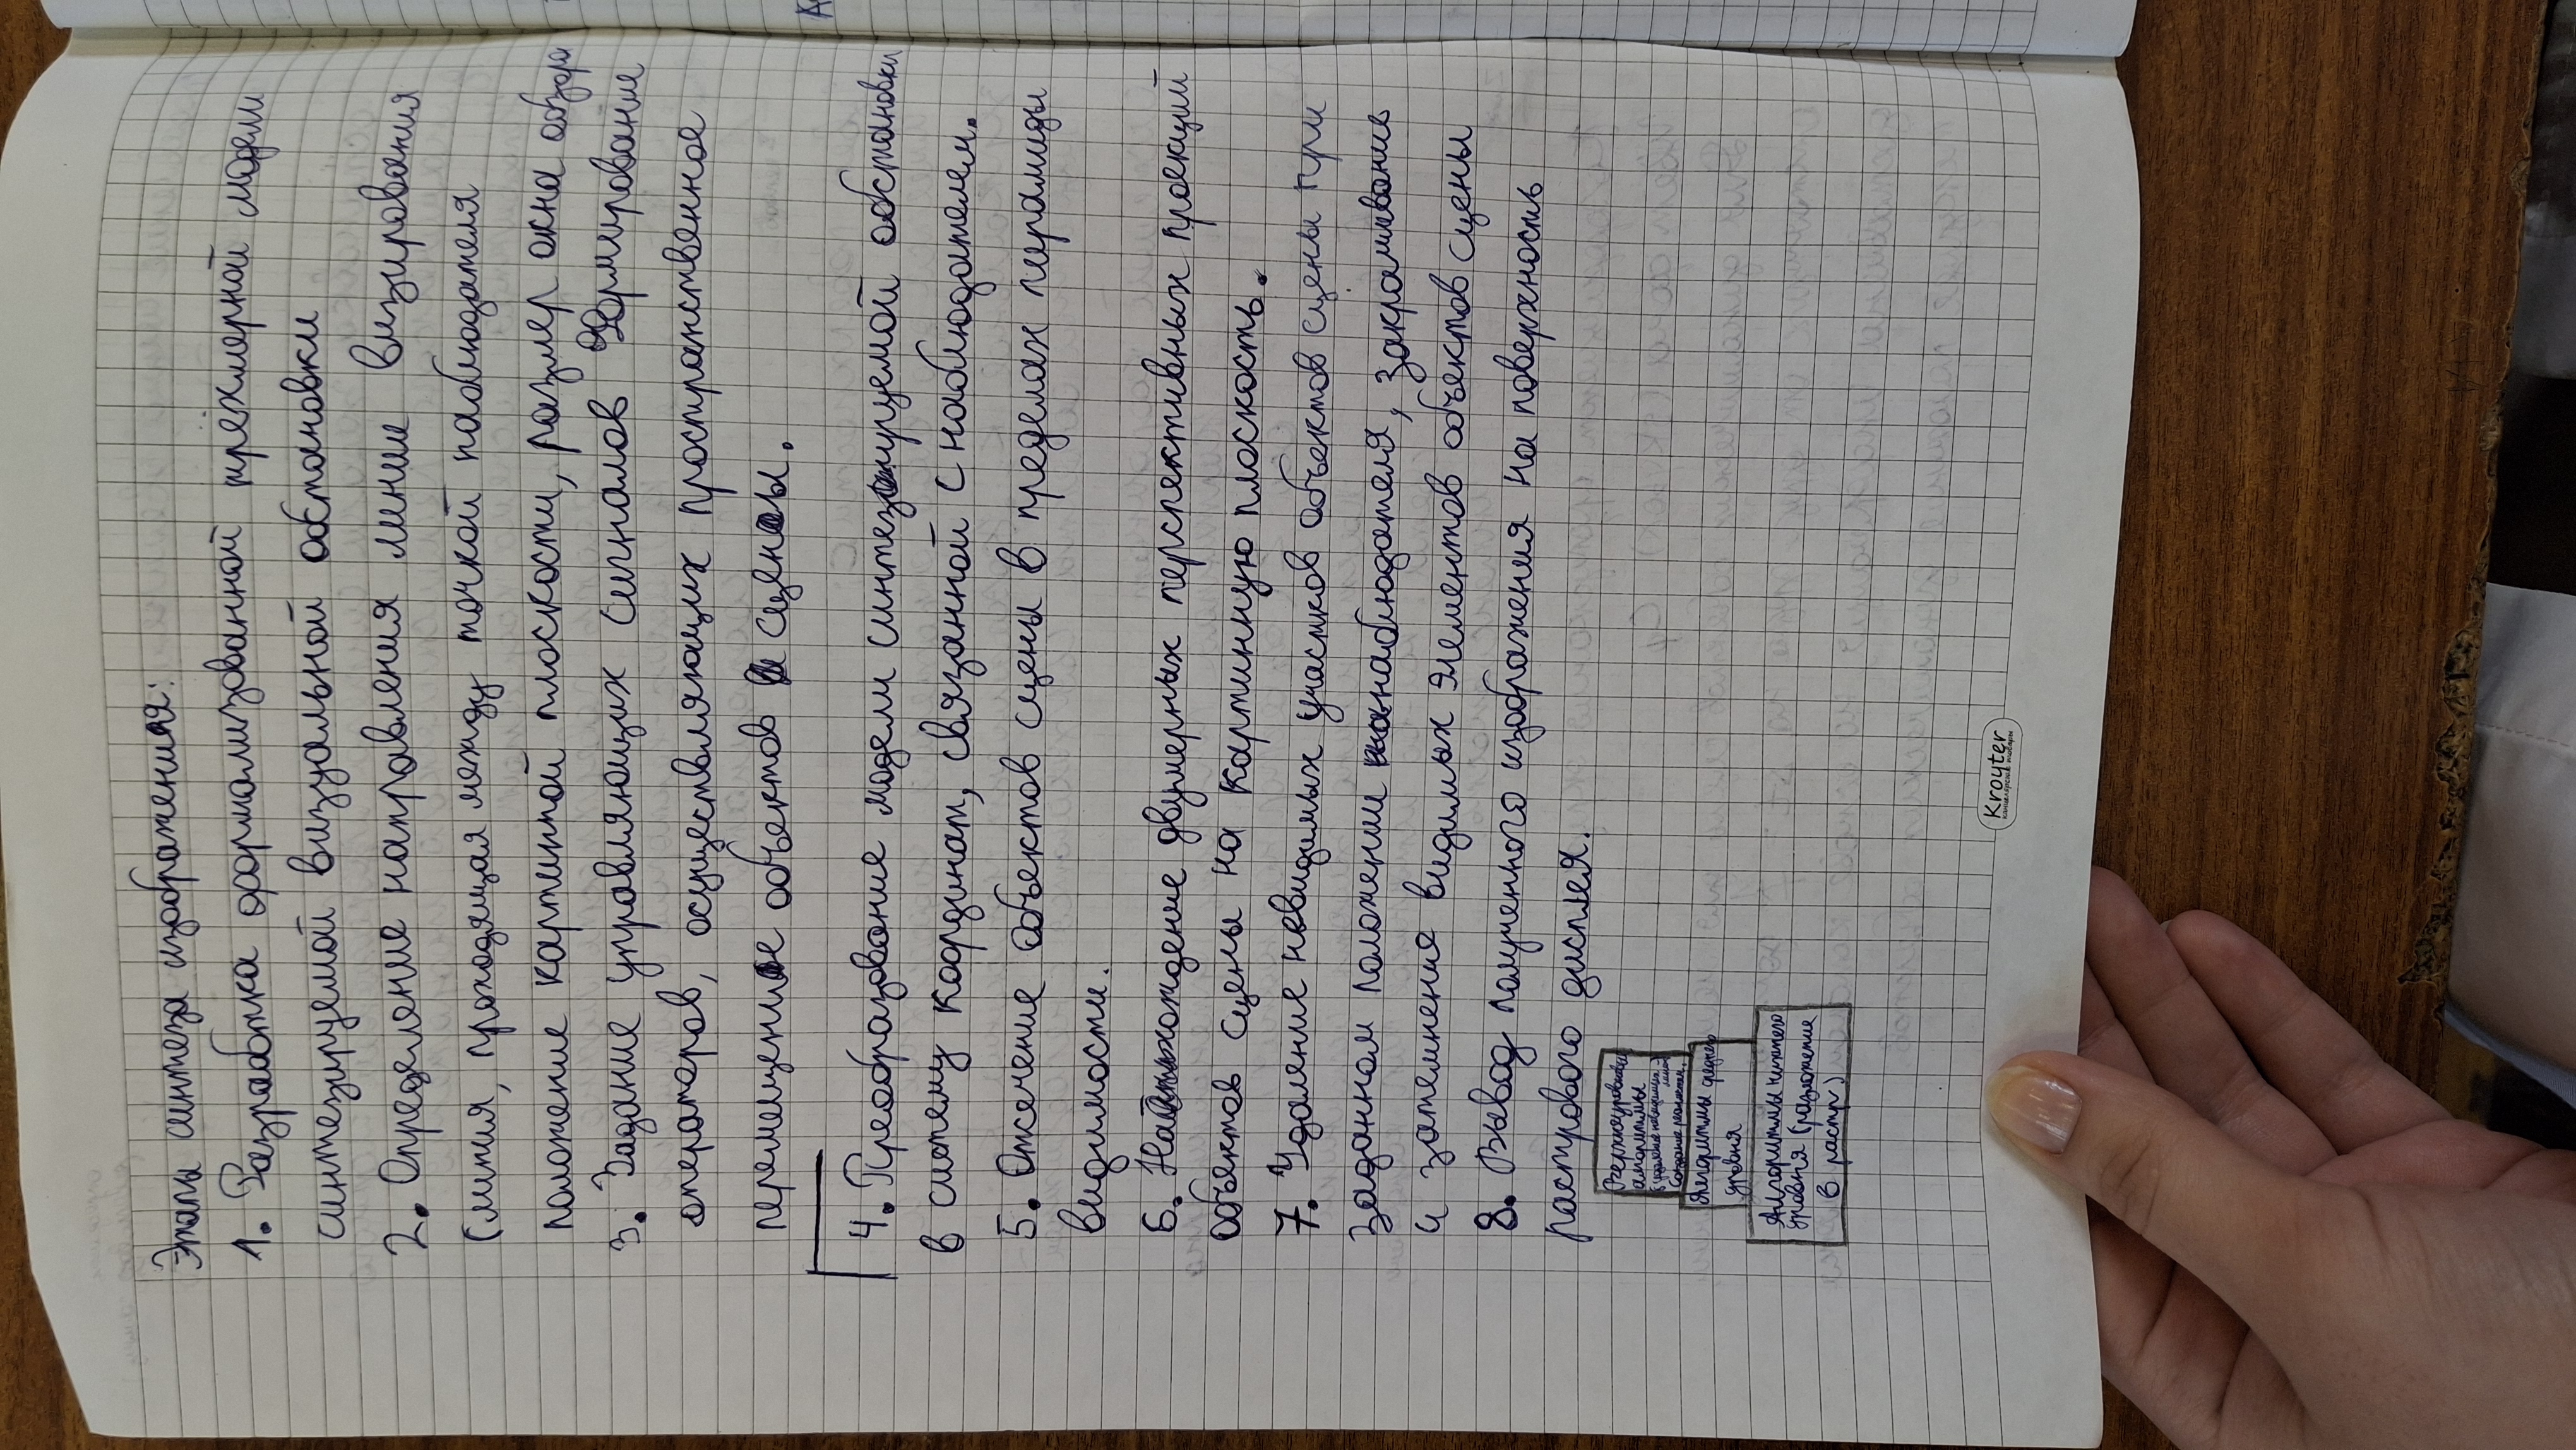 Этапы синтеза изображения:
1. Разработка формализованной трёхмерной модели
синтезируемой визуальной обстановки
2. Определение направления линии визирования
(линия, проходящая между точкой наблюдателя
положение картинной плоскости, размер окна обзора
3. Задание управляющих сигналов Формирование
операторов, осуществляющих пространственное
перемещение объектов и сцены.
4. Преобразование модели синтезируемой обстановки
в систему координат, связанной с наблюдателем.
5. Отсечение объектов сцены в пределах пирамиды
видимости.
6. Нахождение двумерных перспективных проекций
объектов сцены на картинную плоскость.
7. Удаление невидимых участков объектов сцены при
заданном положении наблюдателя, закрашивание
и затемнение видимых элементов объектов сцены
8. Вывод полученного изображения на поверхность
растрового дисплея.
Верхнеуровневые
алгоритмы
(удаление невидимых линий
Создание реалистич.
Алгоритмы среднего
уровня
Алгоритмы нижнего
уровня (разложение
в растр)
Krouter
канцелярские товары